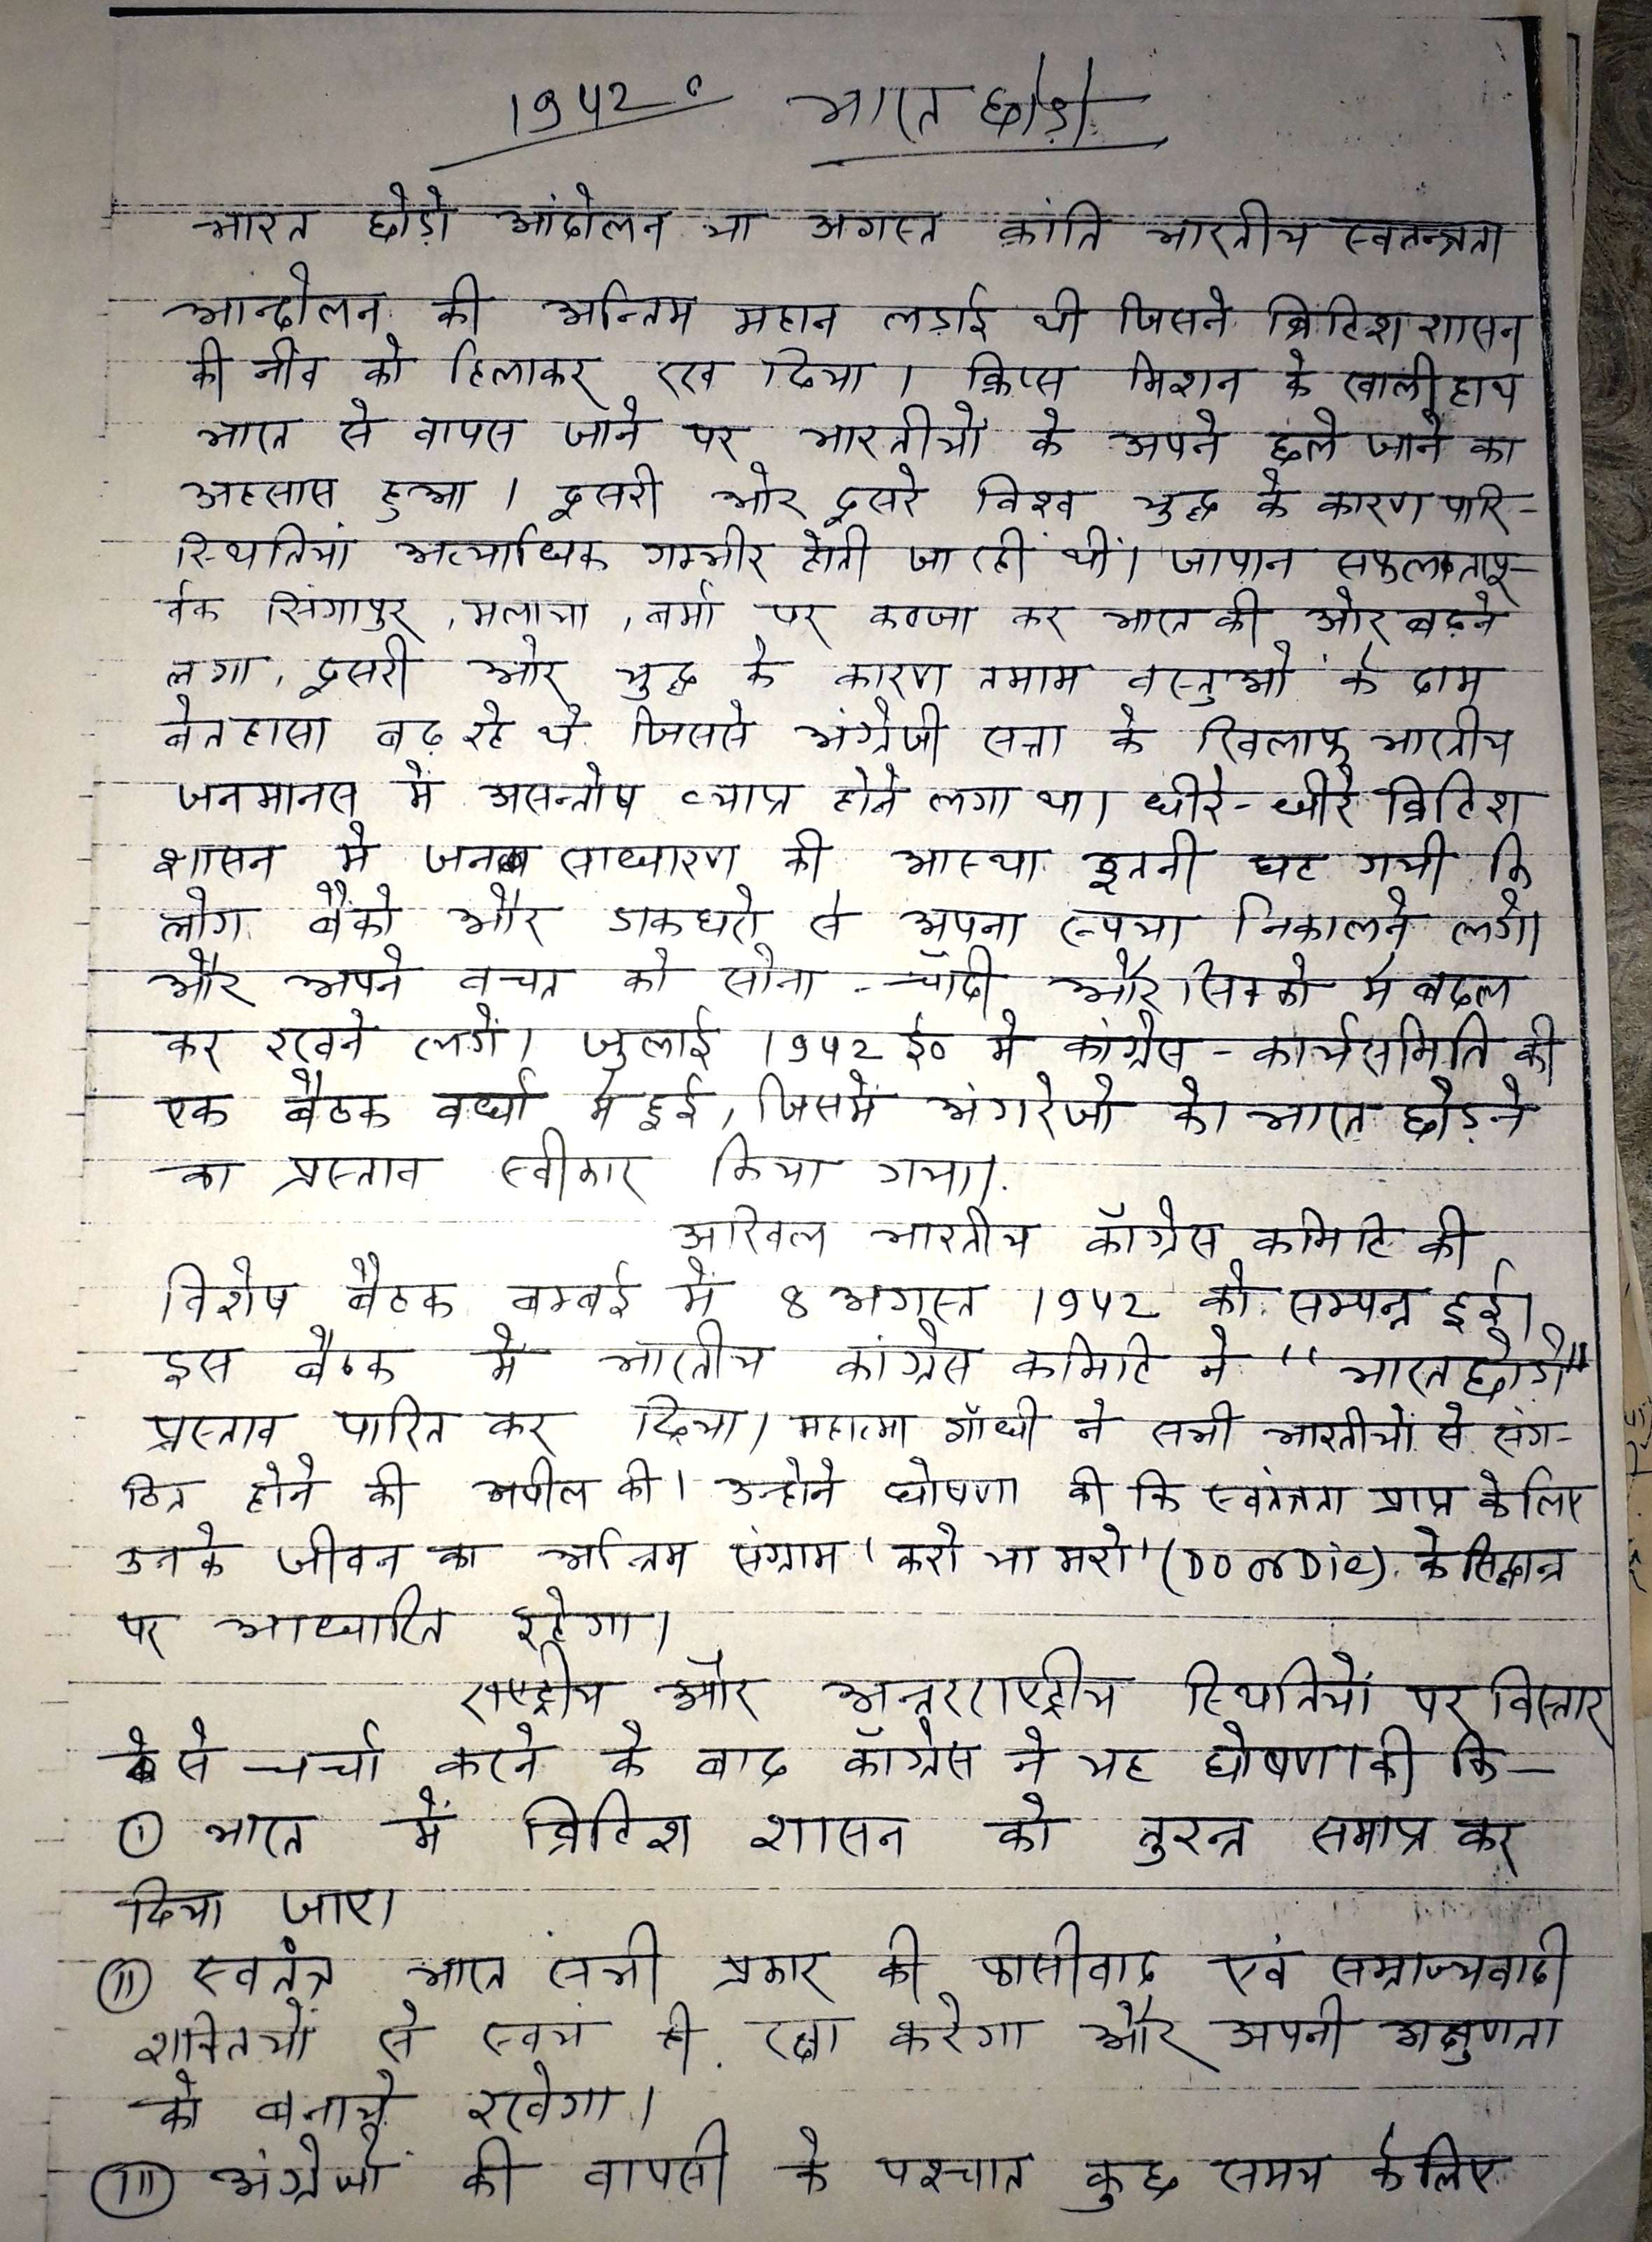 1942 भारत छोड़ो
भारत छोड़ो आंदोलन या अगस्त क्रांति भारतीय स्वतन्त्रता
आन्दोलन की अन्तिम महान लड़ाई थी जिसने ब्रिटिश शासन
की नीव को हिलाकर रख दिया। क्रिप्स मिशन के खाली हाथ
भारत से वापस जाने पर भारतीयों के अपने छले जाने का
अहसास हुआ। दूसरी ओर दूसरे विश्व युद्ध के कारण परि-
स्थितियां अत्याधिक गम्भीर होती जा रही थीं। जापान सफलतापू-
र्वक सिंगापुर, मलाया, बर्मा पर कब्जा कर भारत की ओर बढ़ने
लगा, दूसरी ओर युद्ध के कारण तमाम वस्तुओं के दाम
बेतहासा बढ़ रहे थे जिससे अंग्रेजी सत्ता के खिलाफ भारतीय
जनमानस में असन्तोष व्याप्त होने लगा था। धीरे-धीरे ब्रिटिश
शासन में जन साधारण की आस्था इतनी घट गयी कि
लोग बैंको और डाकघरो से अपना रूपया निकालने लगे।
और अपने बचत को सोना-चाँदी और सिक्को में बदल
कर रखने लगें। जुलाई 1942 ई० मे कांग्रेस-कार्यसमिति की
एक बैठक वर्धा मे हुई, जिसमें अंगरेजो को भारत छोड़ने
का प्रस्ताव स्वीकार किया गया।
अखिल भारतीय काँग्रेस कमिटि की
विशेष बैठक बम्बई में 8 अगस्त 1942 को सम्पन्न हुई।
इस बैठक में भारतीय कांग्रेस कमिटि ने "भारत छोड़ो"
प्रस्ताव पारित कर दिया। महात्मा गाँधी ने सभी भारतीयों से संग-
ठित होने की अपील की। उन्होने घोषणा की कि स्वतंत्रता प्राप्त के लिए
उनके जीवन का अन्तिम संग्राम 'करो या मरो' (DO or Die) के सिद्धान्त
पर आधारित रहेगा।
राष्ट्रीय और अन्तरराष्ट्रीय स्थितियों पर विस्तार
से चर्चा करने के बाद काँग्रेस ने यह घोषणा की कि—
(I) भारत में ब्रिटिश शासन को तुरन्त समाप्त कर
दिया जाए।
(II) स्वतंत्र भारत सभी प्रकार की फासीवाद एवं सम्राज्यवादी
शक्तियों से स्वयं ही रक्षा करेगा और अपनी अक्षुणता
को बनाये रखेगा।
(III) अंग्रेजों की वापसी के पश्चात कुछ समय के लिए